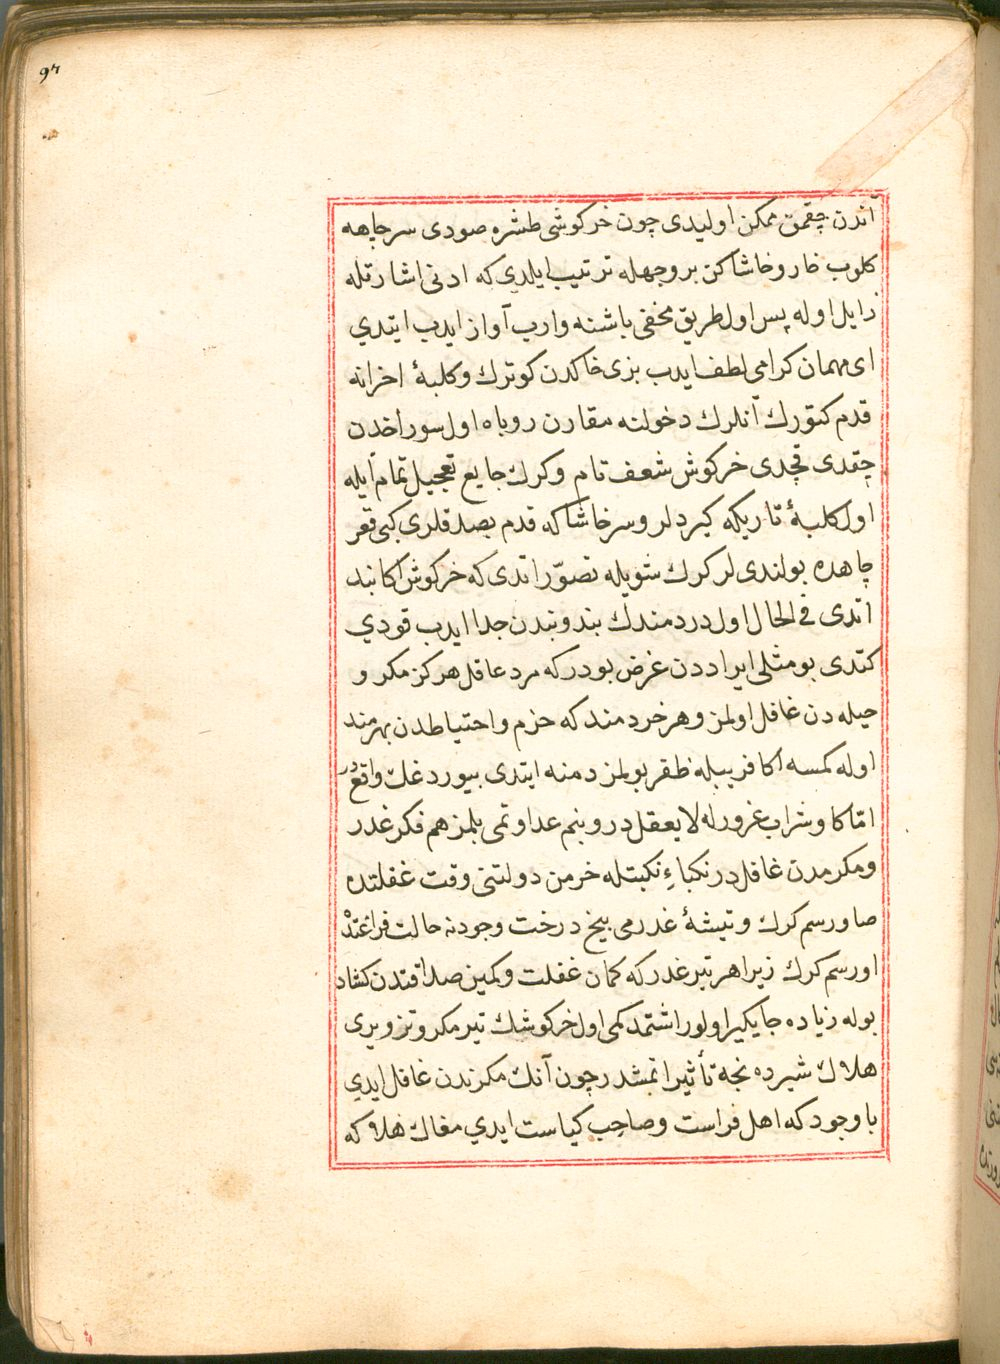 آندن چقمق ممكن اولیدی چون خركوشی طشره صودی سر چاهه
كلوب خار و خاشاكن بر وجهله ترتیب ایلدی كه ادنی اشارتله
زایل اوله پس اول طریق مخفی باشنه وارب آواز ایدب ایتدی
ای مهمان كرامی لطف ایدب بزی خاكدن كوترك و كلبۀ احزانه
قدم كتورك آنلرك دخولنه مقارن روباه اول سوراخدن
چقدی قچدی خركوش شعف تام و كرك جایع تعجیل تمام ایله
اول كلبۀ تاریكه كیردلر و سر خاشاكه قدم بصدقلری كبی قعر
چاهده بولندی لر كرك شویله تصوّر اتدی كه خركوش اكا بند
اتدی فی الحال اول دردمندك بند و بندن جدا ایدب قودی
كتدی بو مثلی ایراددن غرض بودر كه مرد عاقل هركز مكر و
حیله دن غافل اولمز و هر خردمند كه حزم و احتیاطدن بهرمند
اوله كمسه اكا فریبله ظفر بولمز دمنه ایتدی بیوردغك واقعدر
امّا كاو شراب غرورله لا یعقلدر و بنم عداوتمی بلمز هم فكر غدر
و مكرمدن غافلدر نكباءِ نكبتله خرمن دولتنی وقت غفلتده
صاورسم كرك و تیشۀ غدرمی بیخ درخت وجودنه حالت فراغتدْ
اورسم كرك زیرا هر تیر غدر كه كمان غفلت و كمین صداقتدن كشاد
بوله زیاده جایكیر اولور اشتمدكمی اول خركوشك تیر مكر و تزویری
هلاك شیرده نجه تأثیر اتمشدر چون آنك مكرندن غافل ایدی
با وجود كه اهل فراست و صاحب كیاست ایدی مغاك هلاكه
٩٣